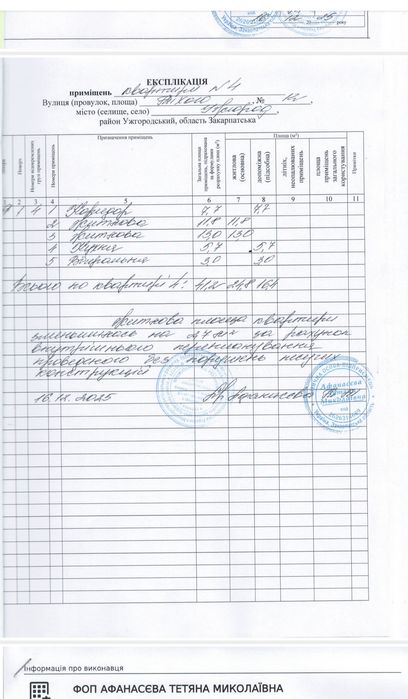 року
ЕКСПЛІКАЦІЯ
приміщень квартири №4
Вулиця (провулок, площа) Тихого, № 12
місто (селище, село) Ужгород,
район Ужгородський, область Закарпатська
Поверх
Номери приміщень
Призначення приміщень
Площа (м²)
житлова (основна)
допоміжна (підсобна)
літніх, неопалюваних приміщень
площа приміщень загального користування
Примітки
1 2 3 4 5 6 7 8 9 10 11
1 4 1 Коридор 7,7 7,7
2 Житлова 11,8 11,8
3 Житлова 13,0 13,0
4 Кухня 5,7 5,7
5 Вбиральня 3,0 3,0
Всього по квартирі 4: 41,2 24,8 16,4
Житлова площа квартири
зменшилась на 2,7 кв.м за рахунок
внутрішнього перепланування
проведеного без порушень несучих
конструкцій
16.12.2025 Афанасєва
Афанасєва
Тетяна
Миколаївна
Інформація про виконавця
ФОП АФАНАСЄВА ТЕТЯНА МИКОЛАЇВНА